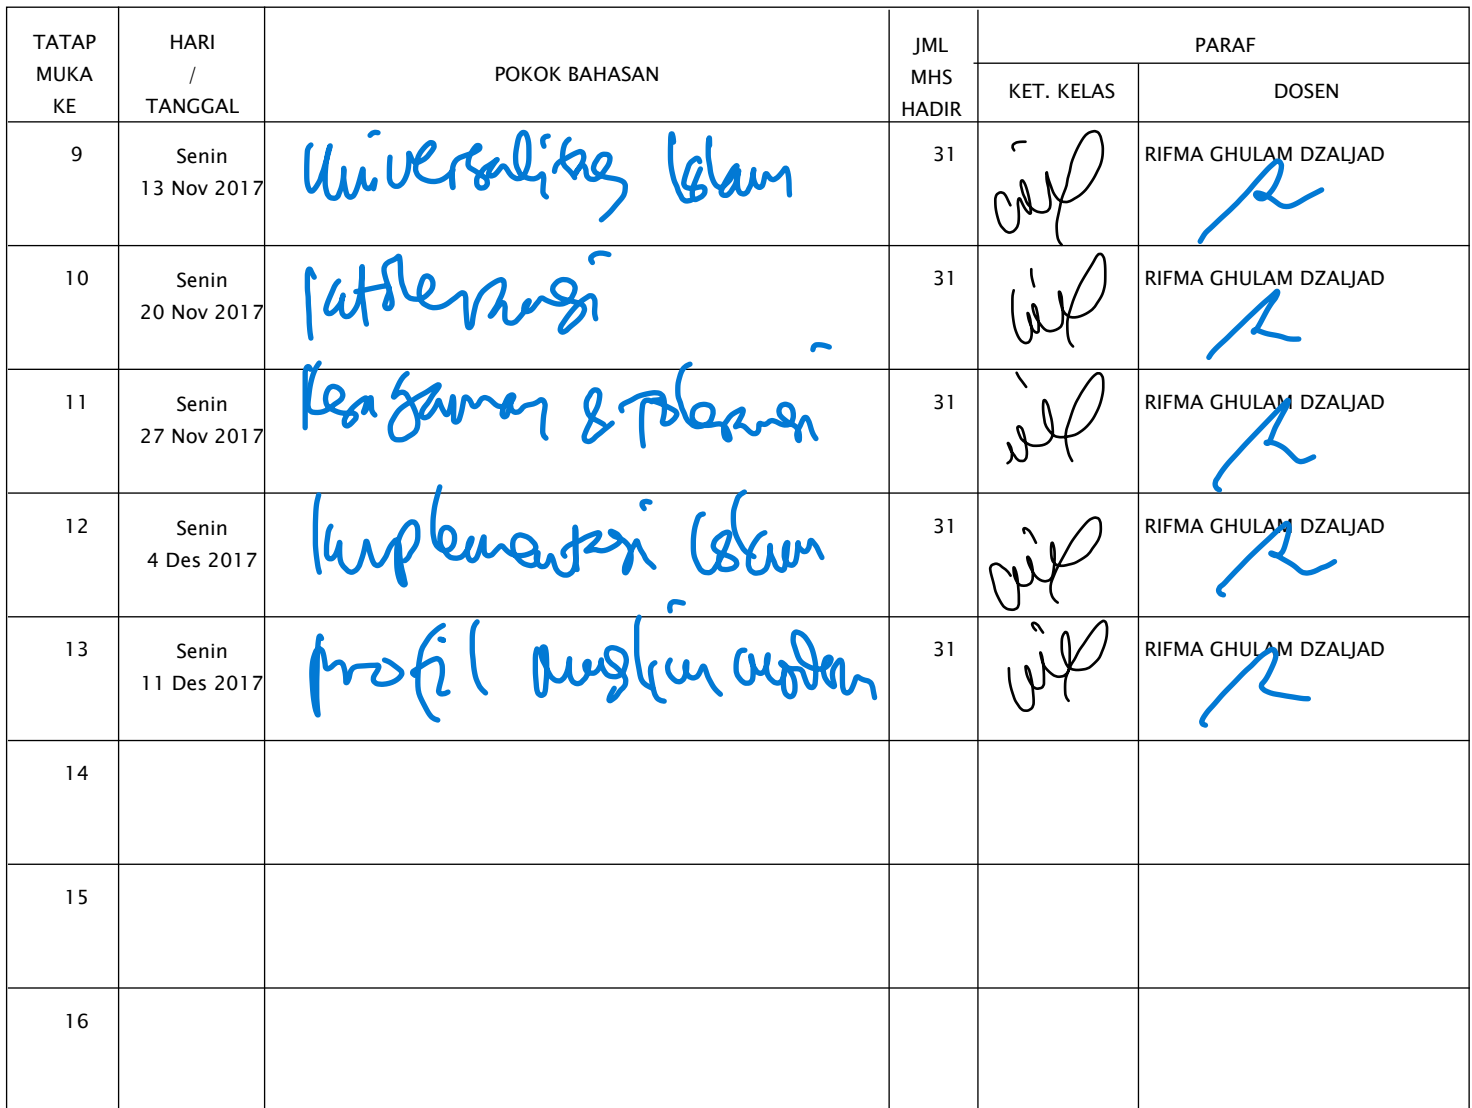 TATAP MUKA KE HARI / TANGGAL POKOK BAHASAN JML MHS HADIR PARAF
KET. KELAS DOSEN
9 Senin 13 Nov 2017 Universalitas Islam 31 RIFMA GHULAM DZALJAD
10 Senin 20 Nov 2017 31 RIFMA GHULAM DZALJAD
11 Senin 27 Nov 2017 & Toleransi 31 RIFMA GHULAM DZALJAD
12 Senin 4 Des 2017 Implementasi Islam 31 RIFMA GHULAM DZALJAD
13 Senin 11 Des 2017 profil muslim modern 31 RIFMA GHULAM DZALJAD
14
15
16